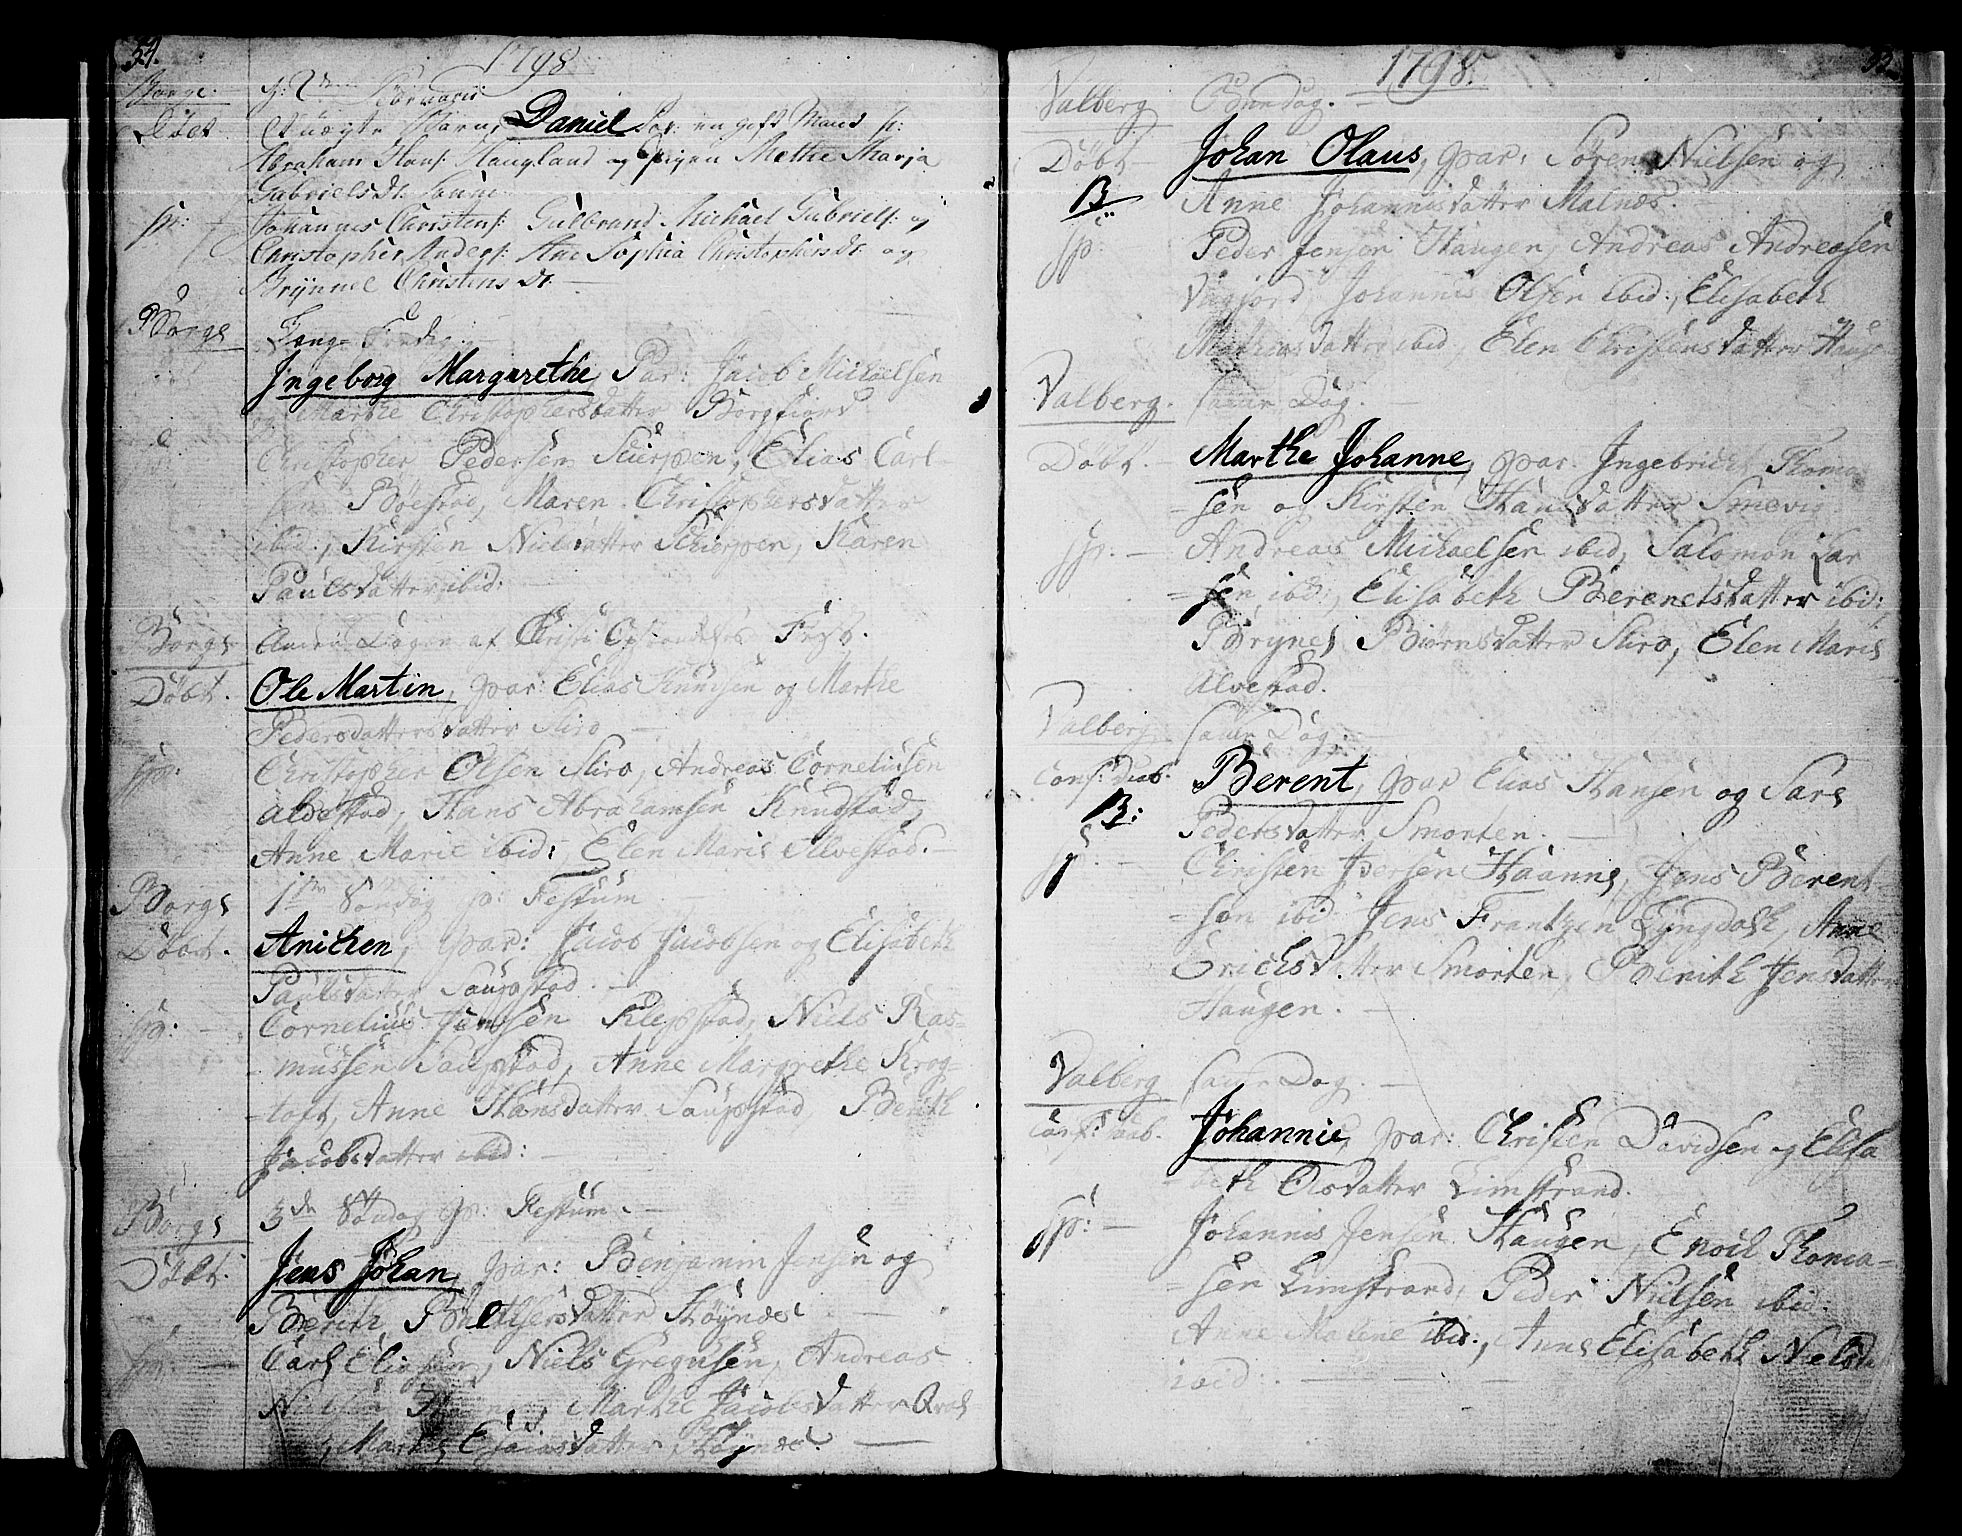 1798
Borge:
Februarii
Döbt
Et uægte Barn, Daniel
en gift Mand
Abraham Hans: Haugland og Pigen Methe Marja
Gabrielsdt.
sp:
Johannes Christens: Gulbrand: Michael Gabriels: og
Christopher Anders: Ane Sophia Christophersdt. og
Brynnel Christensdt. —
Borge
Ingeborg Margarethe, Par: Jacob Michaelsen
og Marthe Christophersdatter Borgfiord
Christopher Pedersen Skierpen, Elias Carl-
sen Böestad, Maren Christophersdatter
ibid:, Kirsten Nielsdatter Skierpen, Karen
Paulsdatter ibid:
Borge
Anden Dagen af Christi Opstandelses Fest.
Döbt.
Ole Martin, par: Elias Knudsen og Marthe
Pedersdatter Sliro —
sp:
Christopher Olsen Sliro, Andreas Corneliusen
Alvestad, Hans Abrahamsen Knudstad,
Anne Marie ibid:, Elen Marie Alvestad. —
Borge
1ste Söndag p: Festum —
Döbt.
Anichen, par: Jacob Jacobsen og Elisabeth
Paulsdatter Saupstad. —
sp: —
Cornelius Jensen Klepstad, Niels Ras-
mussen Saupstad, Anne Margrethe Krog-
toft, Anne Hansdatter Saupstad, Berith
Jacobsdatter ibid: —
Borge
3de Söndag p: Festum. —
Döbt.
Jens Johan, par: Benjamin Jensen og
Berith Höynes —
sp: —
Carl Eliasen, Niels Gregusen, Andreas
Nielsen Marthe Jacobsdatter
Marthe Esaiasdatter Höynes. —
1798.
Valberg
Onsdag. —
Döbt
Johan Olaus, par: Sören Nielsen og
B
Anne Johannisdatter Malnæs. —
sp:
Peder Jensen Haugen, Andreas Andreasen
Vagjord, Johannis Olsen ibid:, Elisabeth
Mathiasdatter ibid, Elen Christensdatter
Valberg.
samme Dag.
Döbt. —
Marthe Johanne, par. Ingebricht Thoma-
-sen og Kirsten Hansdatter Smevig
sp. —
Andreas Michaelsen ibid, Salomon Lar
-sen ibid:, Elisabeth Berentsdatter ibid:,
Brynel Biörnsdatter Sliro, Elen Marie
Alvestad.
Valberg
samme Dag. —
Conf: Daab.
Berent, par Elias Hansen og Sare
B:
Pedersdatter Smorten. —
sp. —
Christen Iversen Haanne, Jens Berent-
-sen ibid Jens Frantzen Lyngdath, Anne
Erichsdatter Smorten, Berith Jensdatter
Haugen. —
Valberg
samme Dag. —
Conf: Daab.
Johannie, par: Christen Davidsen og Elisa
beth Olsdatter Limstrand.
sp: —
Johannis Jensen Haugen, Enoch Thoma-
-sen Limstrand, Peder Nielsen ibid:
Anne Malene ibid:, Anne Elisabeth Nielsd
ibid:. —